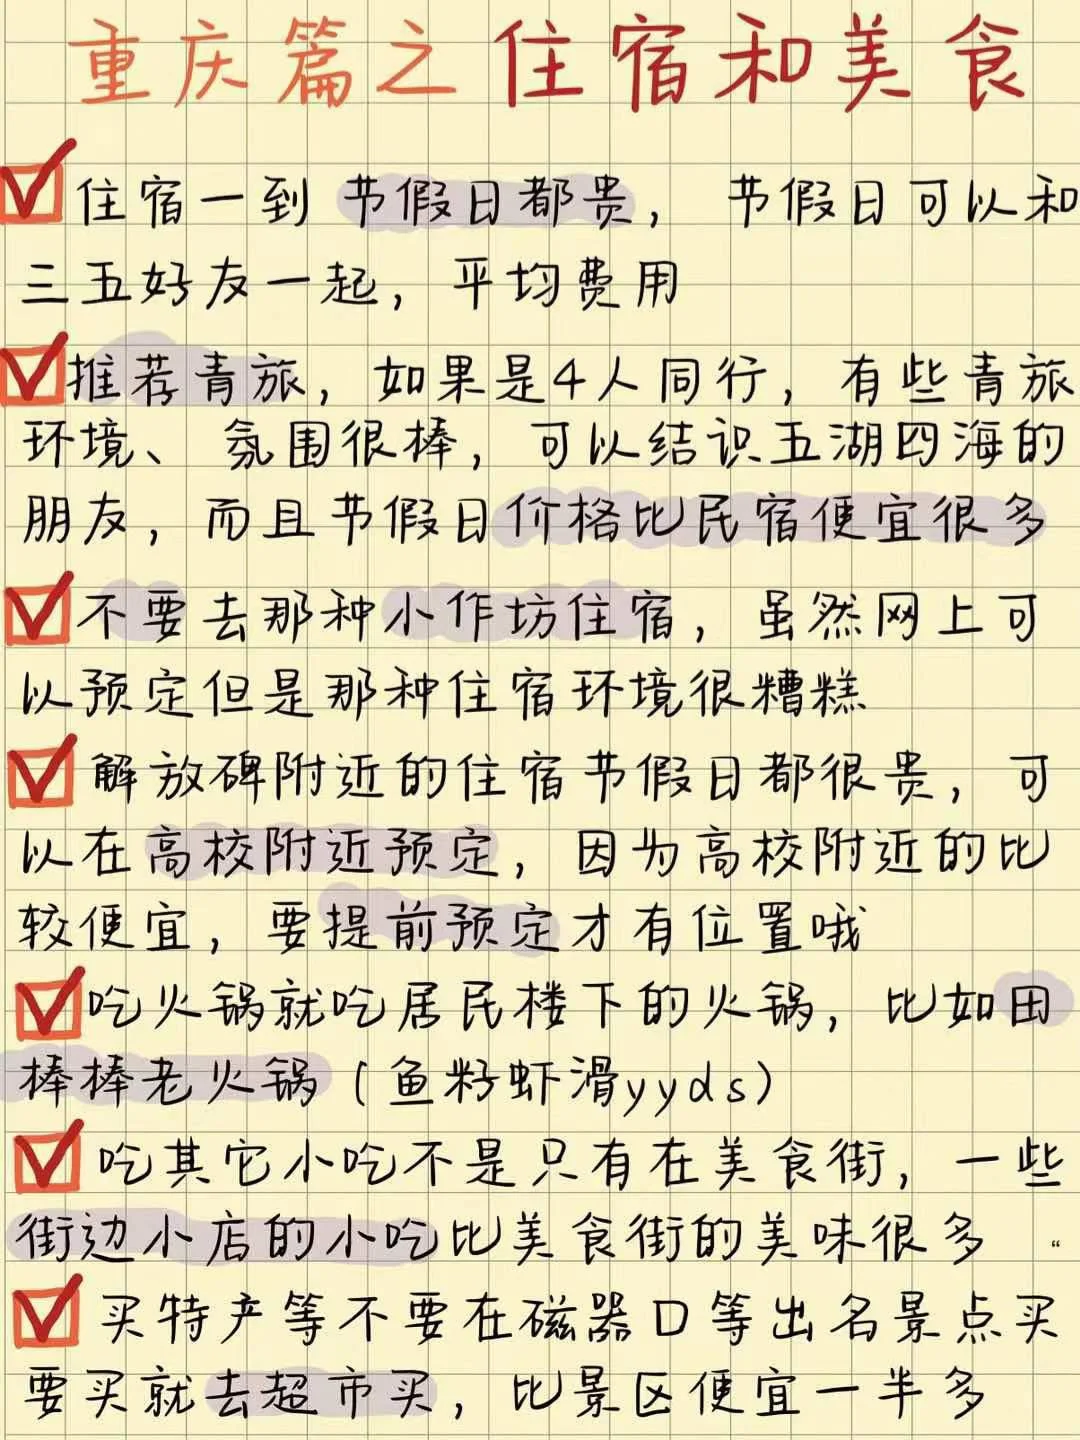 重庆篇之住宿和美食
住宿一到节假日都贵，节假日可以和
三五好友一起，平均费用
推荐青旅，如果是4人同行，有些青旅
环境、氛围很棒，可以结识五湖四海的
朋友，而且节假日价格比民宿便宜很多
不要去那种小作坊住宿，虽然网上可
以预定但是那种住宿环境很糟糕
解放碑附近的住宿节假日都很贵，可
以在高校附近预定，因为高校附近的比
较便宜，要提前预定才有位置哦
吃火锅就吃居民楼下的火锅，比如田
棒棒老火锅（鱼籽虾滑yyds）
吃其它小吃不是只有在美食街，一些
街边小店的小吃比美食街的美味很多 “
买特产等不要在磁器口等出名景点买
要买就去超市买，比景区便宜一半多